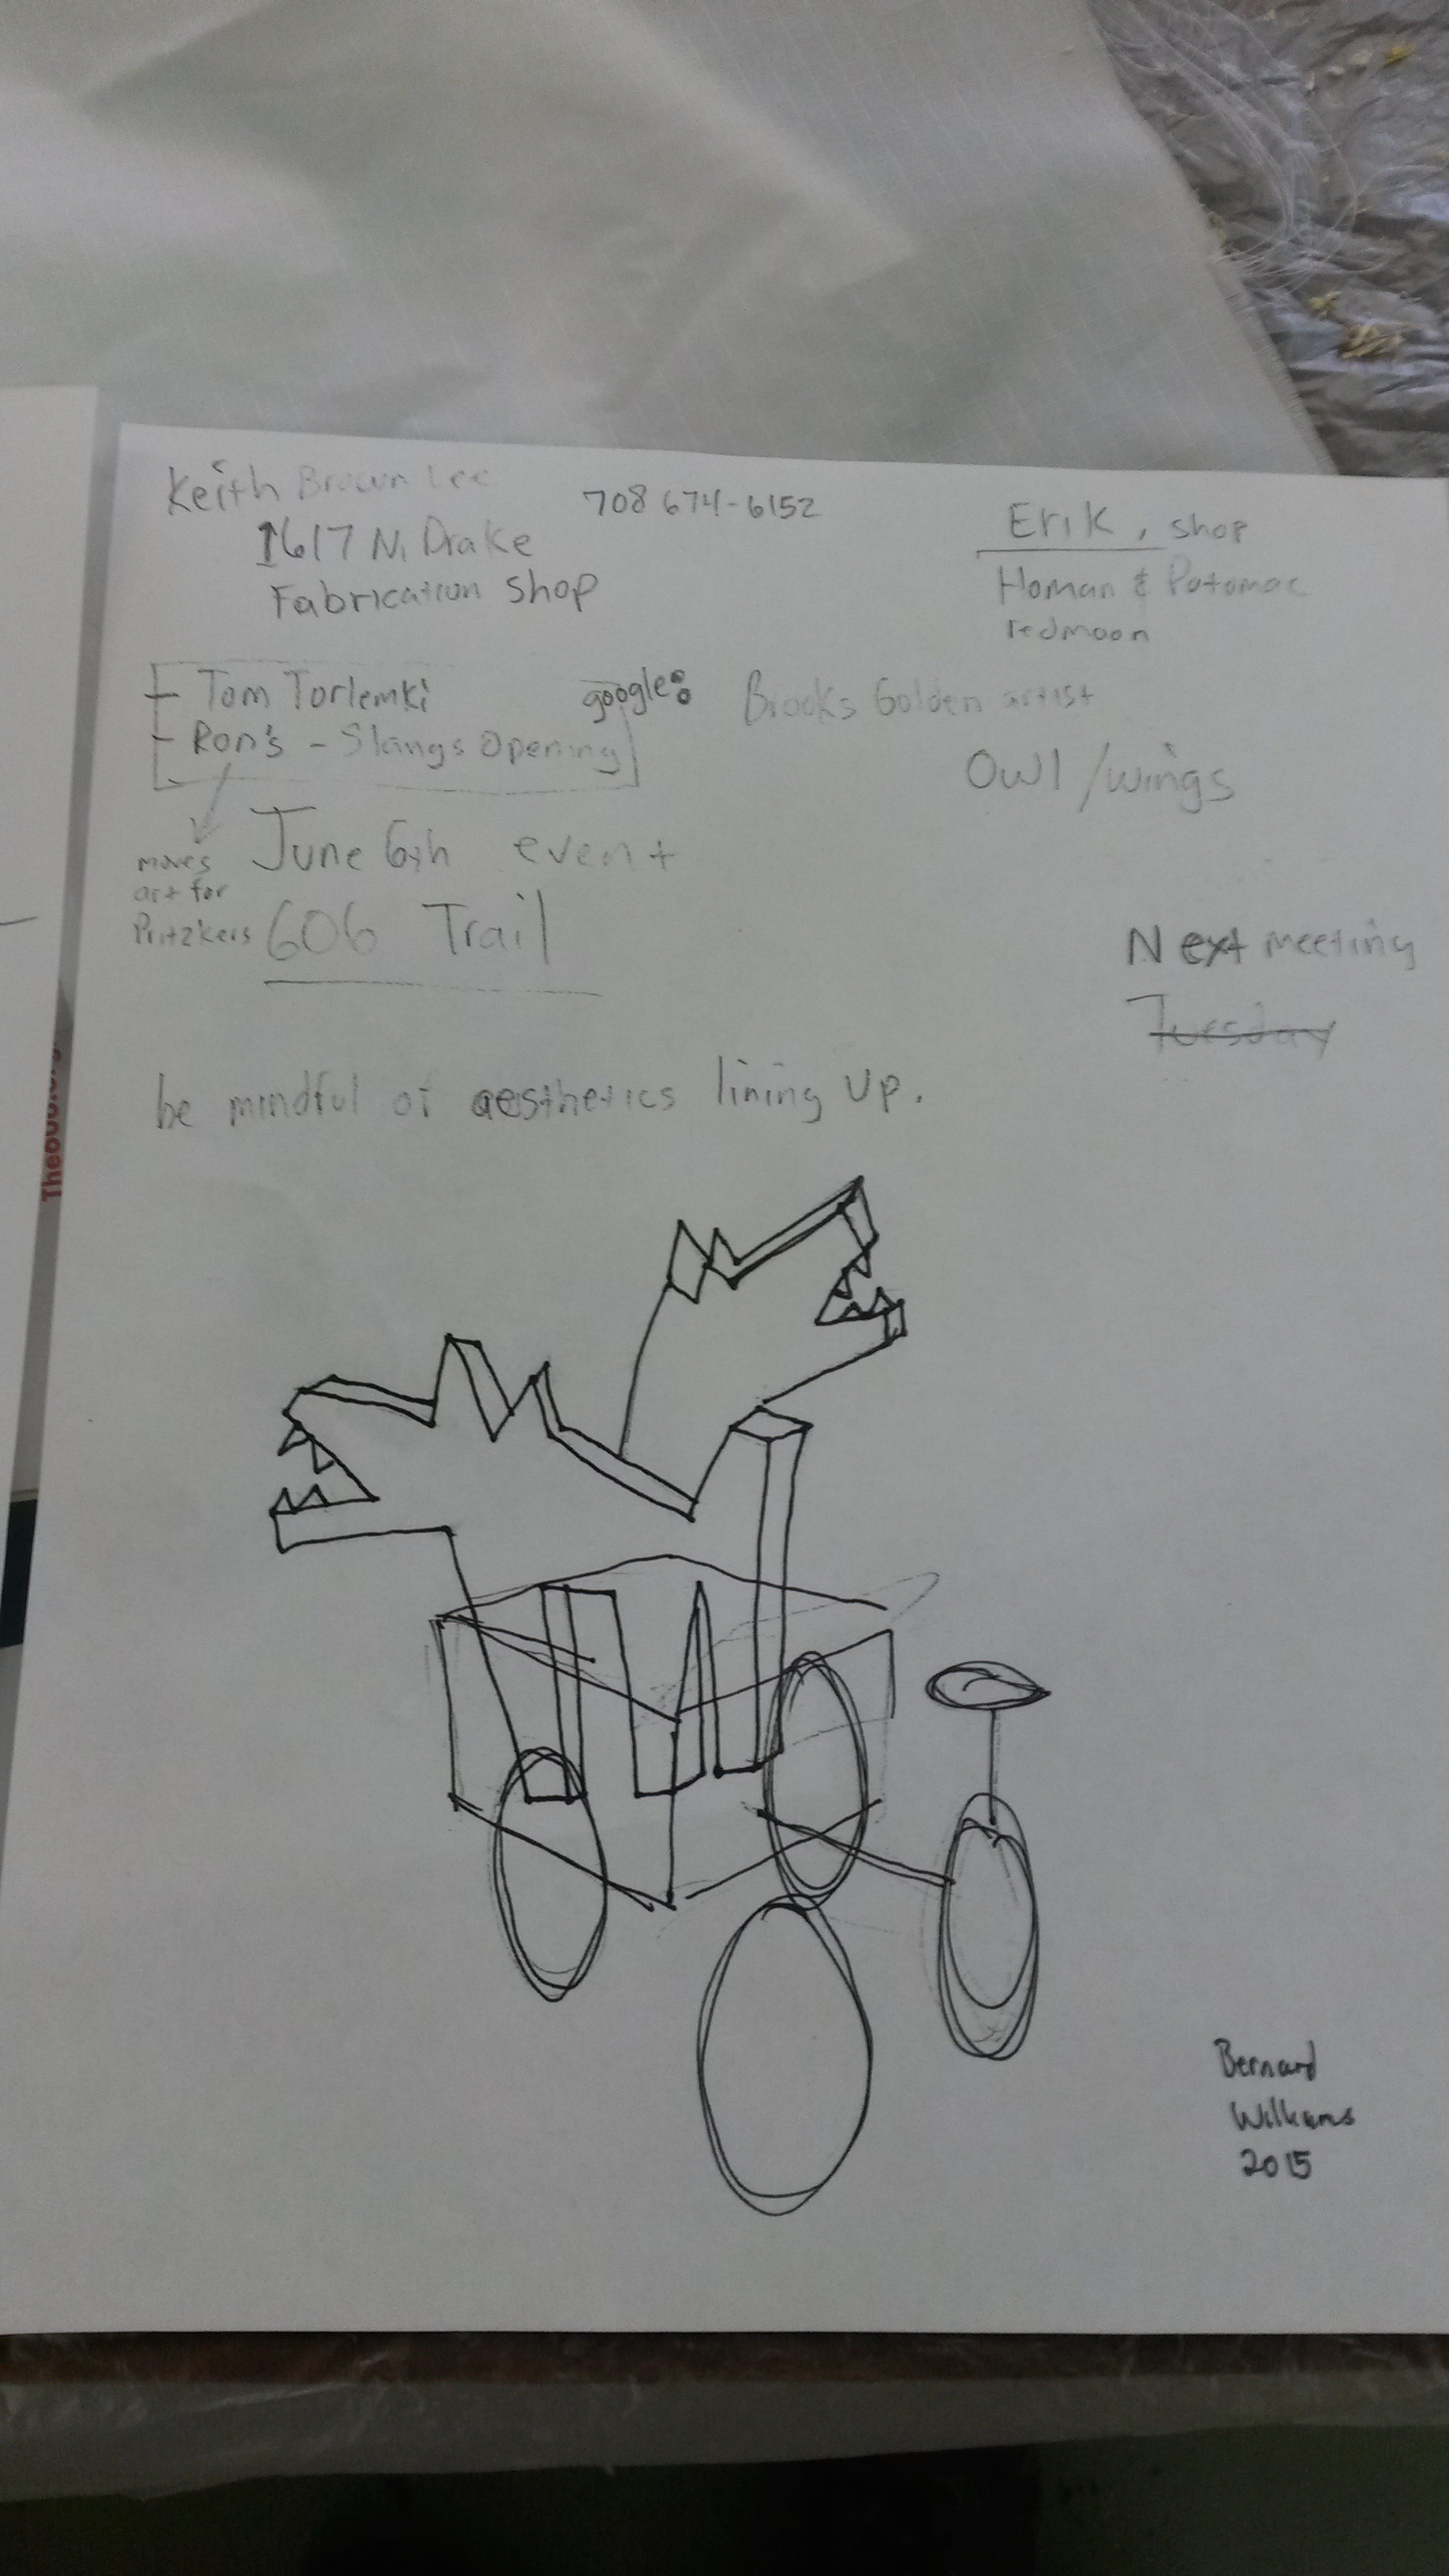 Keith Brown Lee
708 674-6152
1617 N. Drake
Fabrication shop
Erik, shop
Homan & Potomac
redmoon
- Tom Torlemki
- Ron's - Slangs Opening
google:
Brooks Golden artist
Owl /wings
moves
art for
Pritzkers
June 6th event
606 Trail
Next meeting
Tuesday
be mindful of aesthetics lining up.
Bernard
Williams
2015